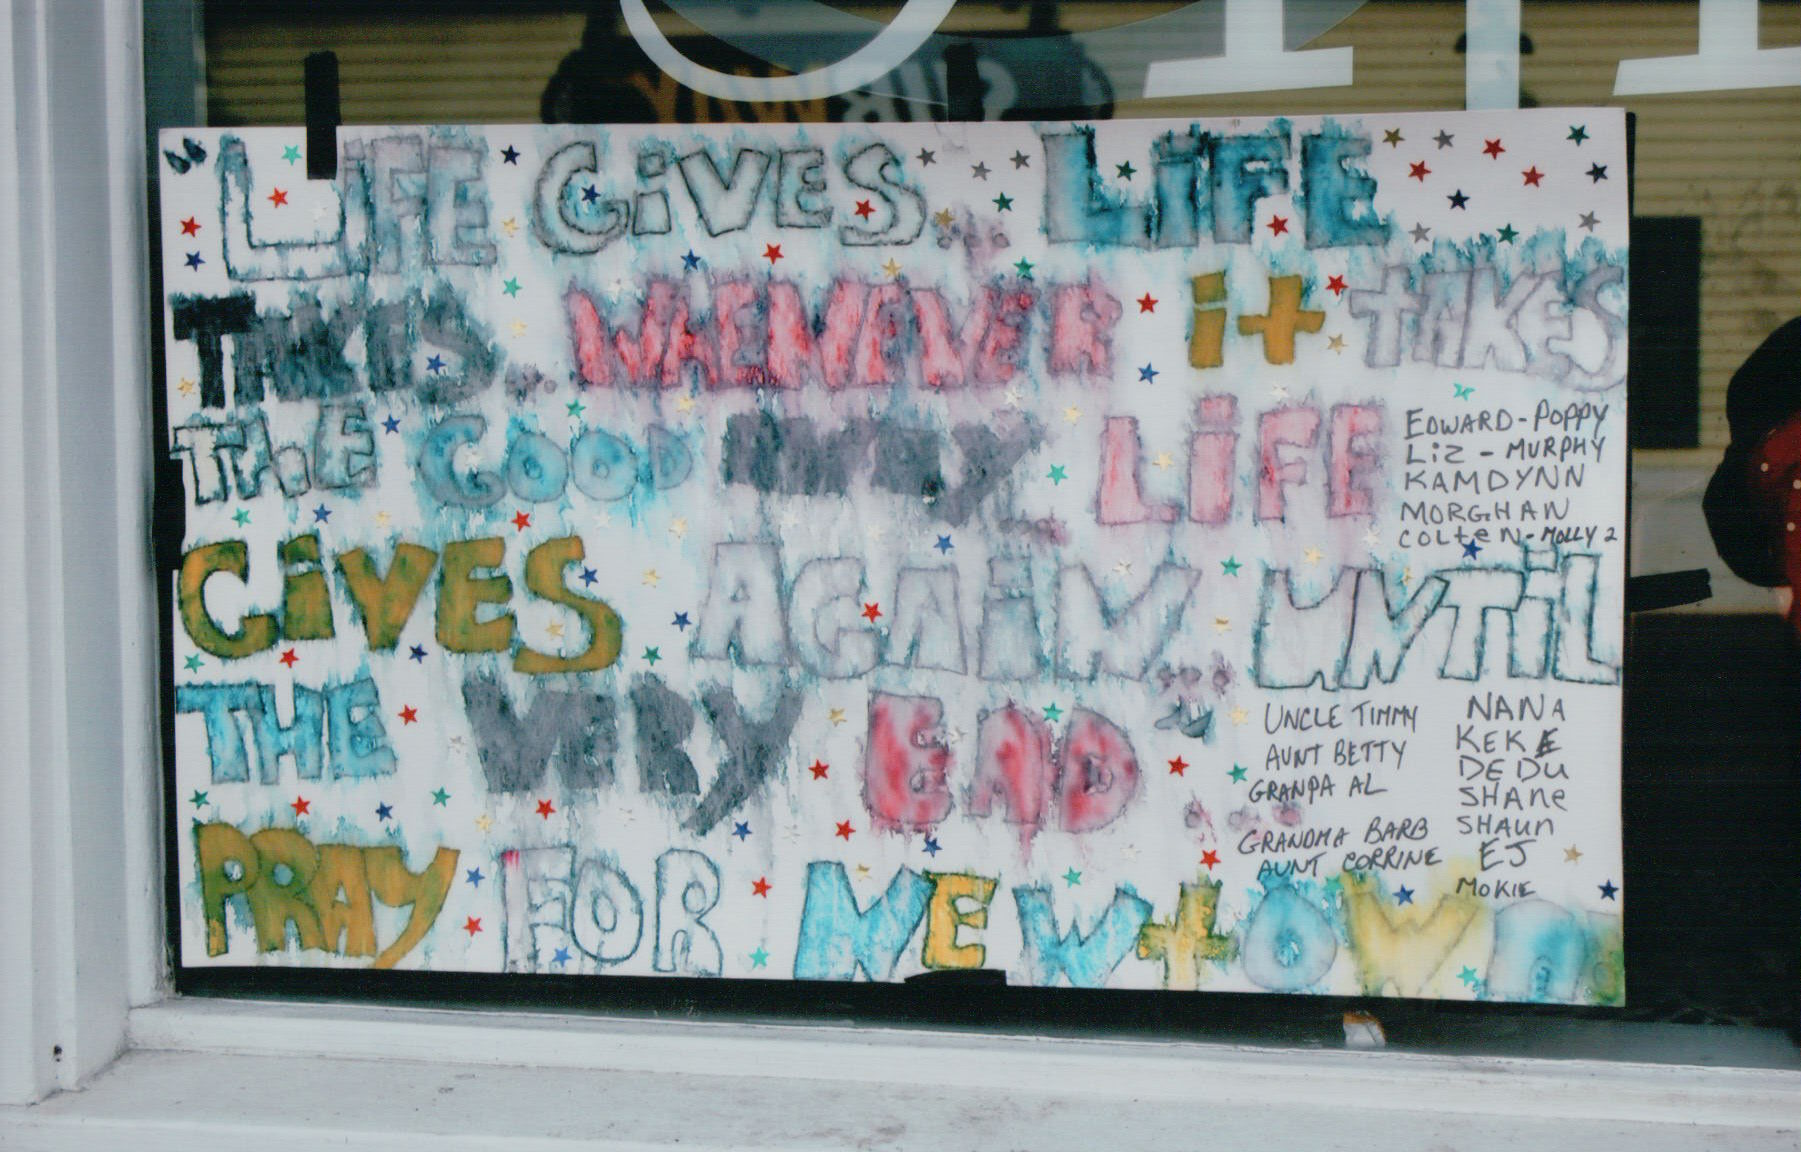 "LiFE GiVES... LiFE
TAKES... WHENEVER it tAKES
thE GOOD AWAY... LiFE
GiVES AGAiN... UNTiL
THE VERY END"...
EDWARD - POPPY
Liz - MURPHY
KAMDYNN
MORGHAN
COLteN - MOLLY 2
UNCLE TIMMY
AUNT BETTY
GRANPA AL
GRANDMA BARB
AUNT CORRINE
NANA
KEKE
DEDU
SHANe
SHAUn
EJ
MOKIE
PRAY FOR NEWtOWn